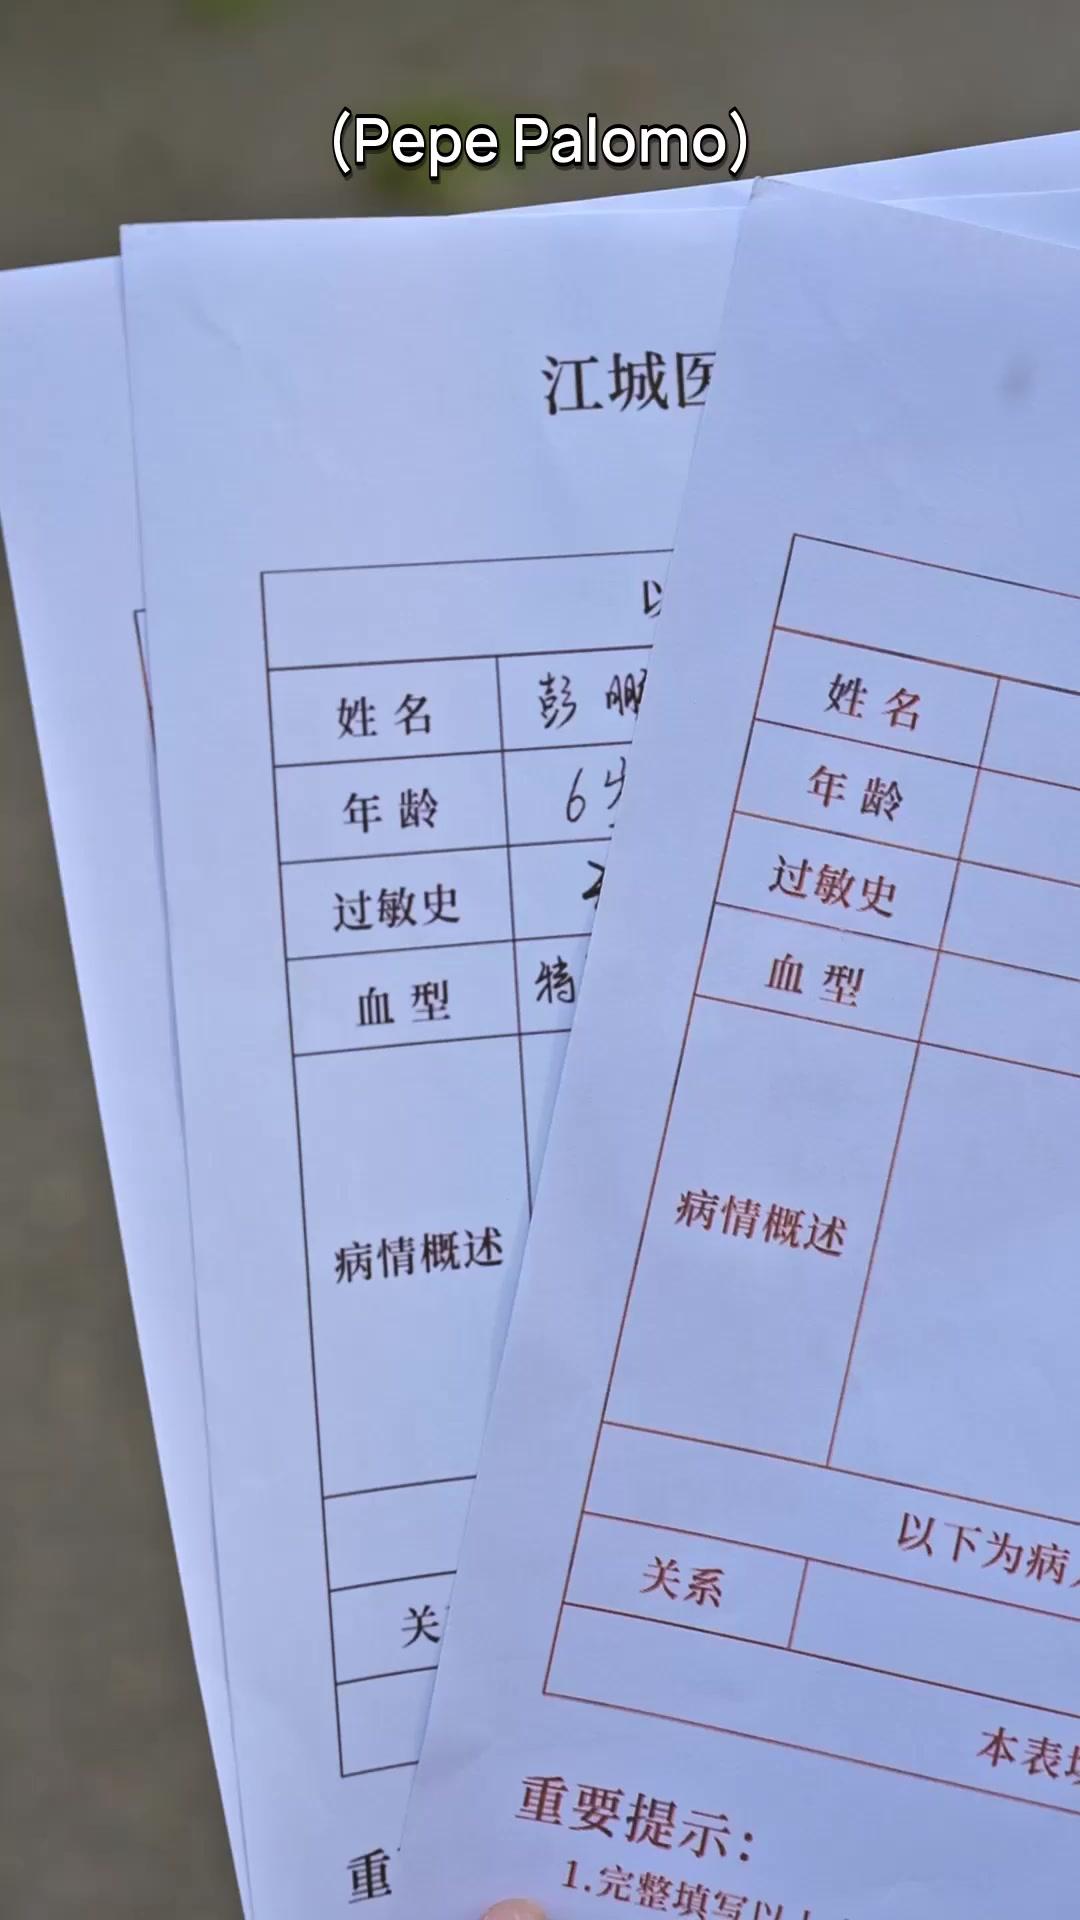 (Pepe Palomo)
江城医
以
姓名 彭鹏
年龄 6岁
过敏史
血型 特
病情概述
关
重
姓名
年龄
过敏史
血型
病情概述
以下为病人
关系
本表填
重要提示：
1.完整填写以上